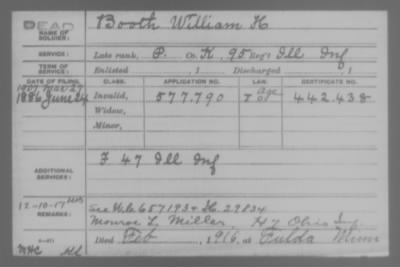 DEAD
NAME OF SOLDIER: Booth William H
SERVICE: Late rank, P. Co. K, 95 Reg't Ill Inf
TERM OF SERVICE: Enlisted , 1 Discharged , 1
DATE OF FILING. CLASS. APPLICATION NO. LAW. CERTIFICATE NO.
1907 Mar 27 Age
1886 June 24 Invalid, 577.790 442.438
Widow,
Minor,
ADDITIONAL SERVICES: F 47 Ill Inf
12-10-17
REMARKS: see 657193 + 29834
Monroe L. Miller, H 7 Ohio Inf
Died Feb , 1916, at Fulda Minn